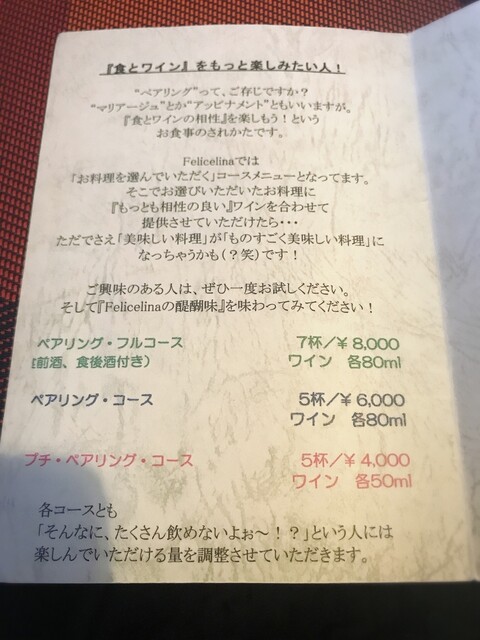 『食とワイン』をもっと楽しみたい人！
“ペアリング”って、ご存じですか？
“マリアージュ”とか“アッビナメント”ともいいますが。
『食とワインの相性』を楽しもう！という
お食事のされかたです。
Felicelinaでは
「お料理を選んでいただく」コースメニューとなってます。
そこでお選びいただいたお料理に
『もっとも相性の良い』ワインを合わせて
提供させていただけたら・・・
ただでさえ「美味しい料理」が「ものすごく美味しい料理」に
なっちゃうかも(？笑)です！
ご興味のある人は、ぜひ一度お試しください。
そして『Felicelinaの醍醐味』を味わってみてください！
ペアリング・フルコース 7杯／¥ 8,000
前酒、食後酒付き） ワイン 各80ml
ペアリング・コース 5杯／¥ 6,000
ワイン 各80ml
プチ・ペアリング・コース 5杯／¥ 4,000
ワイン 各50ml
各コースとも
「そんなに、たくさん飲めないよぉ～！？」という人には
楽しんでいただける量を調整させていただきます。